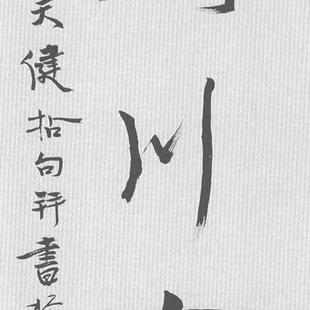 川
天健拈句并書